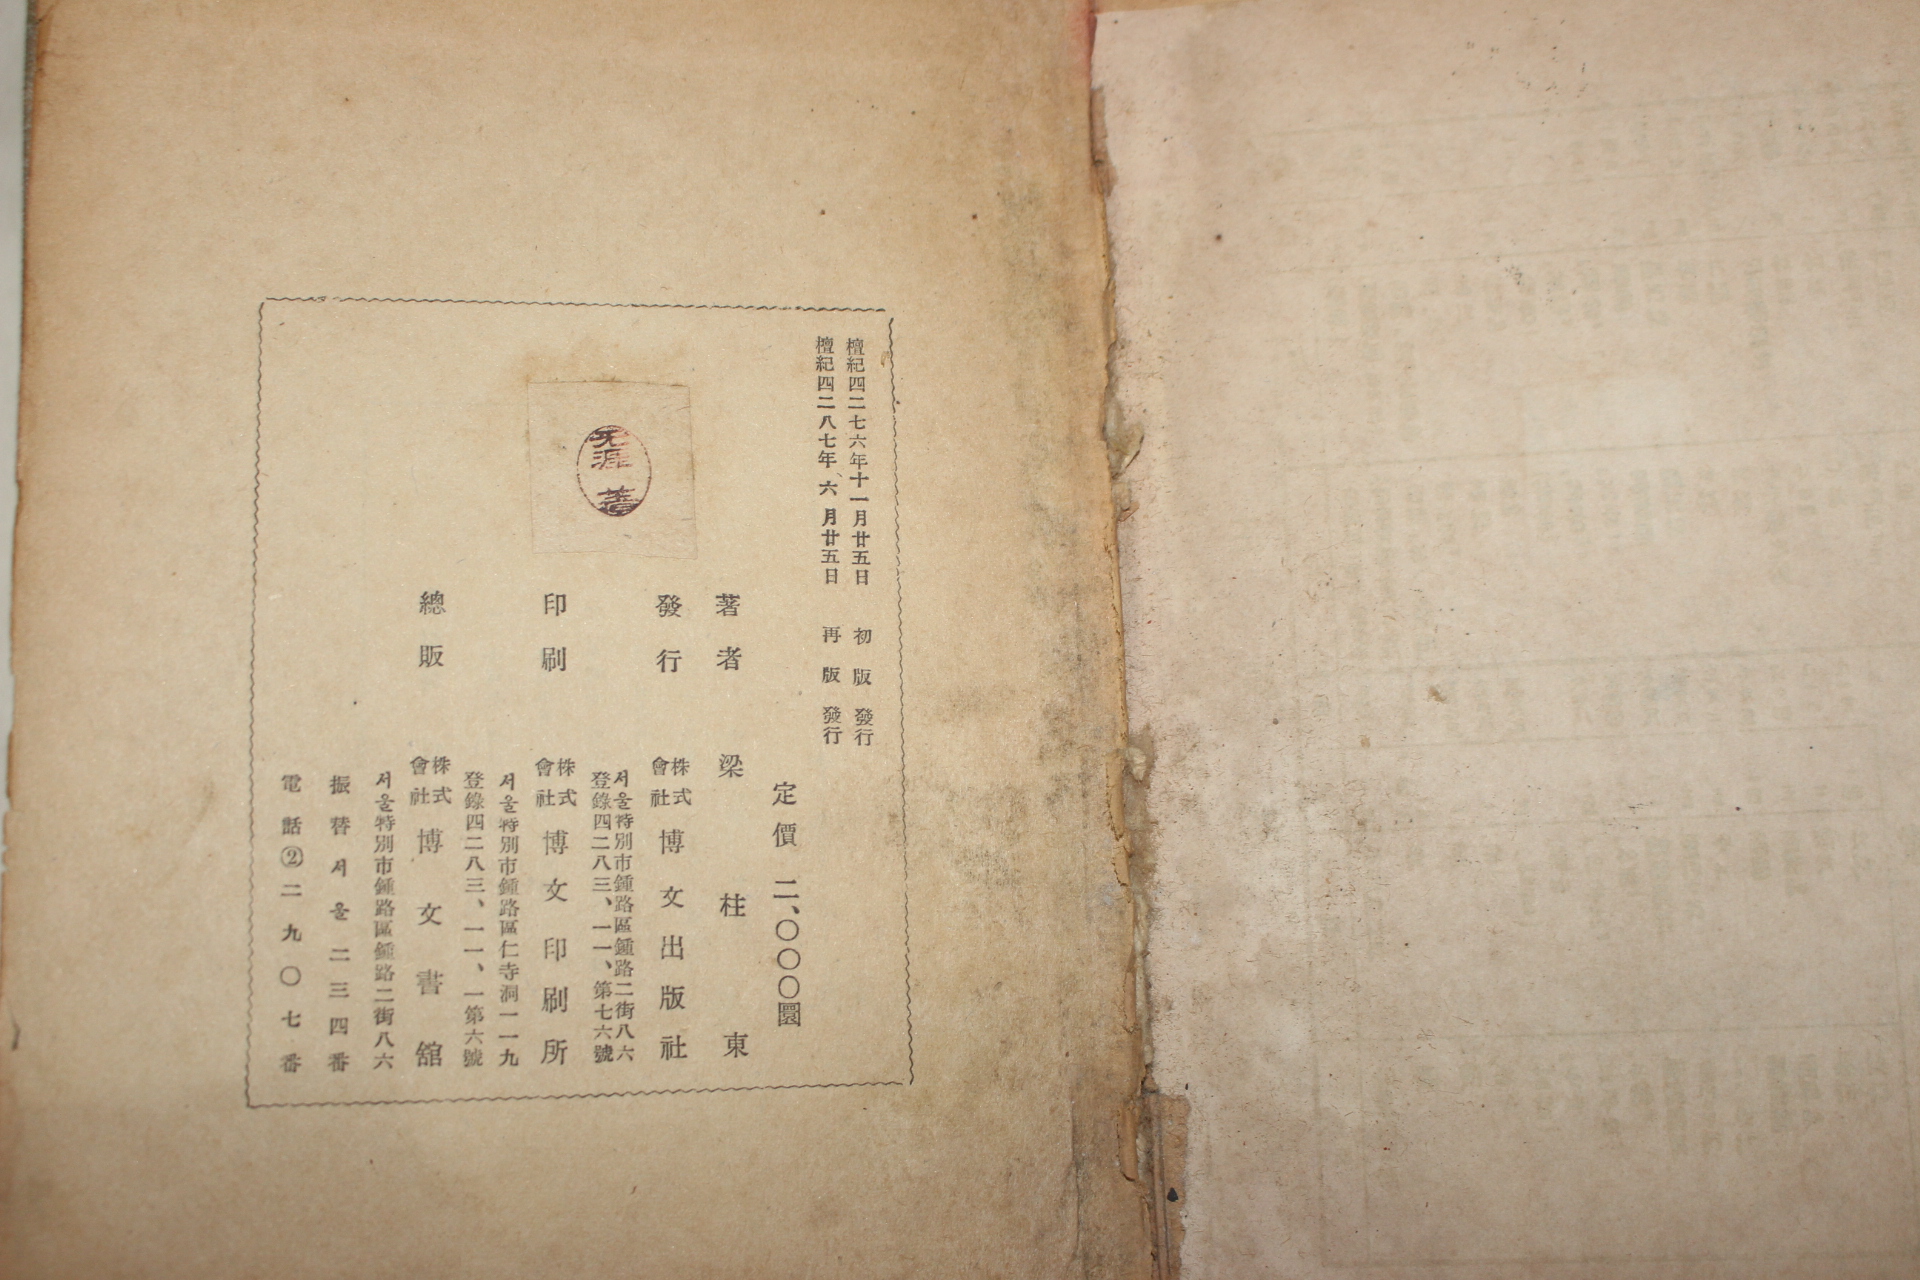 檀紀四二七六年十一月廿五日 初版發行
檀紀四二八七年、六月廿五日 再版發行
定價 二、〇〇〇圜
著者 梁柱東
發行 株式會社 博文出版社
서울特別市鍾路區鍾路二街八六
登錄四二八三、一一、第七六號
印刷 株式會社 博文印刷所
서울特別市鍾路區仁寺洞一一九
登錄四二八三、一一、一第六號
總販 株式會社 博文書舘
서울特別市鍾路區鍾路二街八六
振替서울二三四番
電話②二九〇七番
无涯